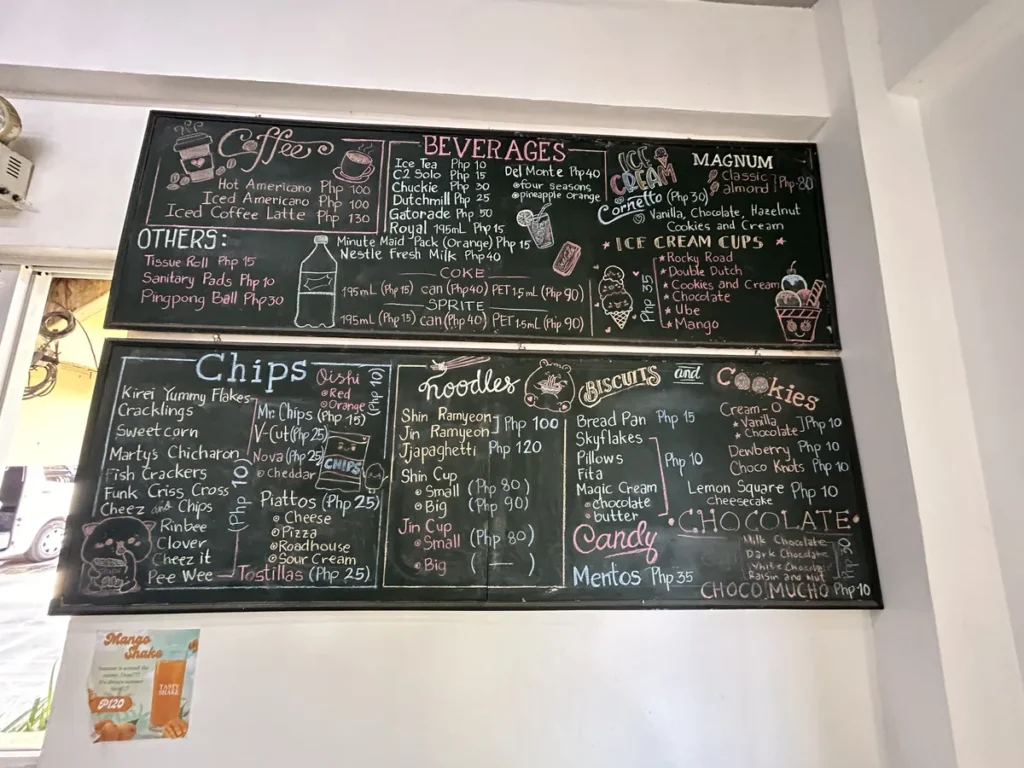 Coffee
Hot Americano Php 100
Iced Americano Php 100
Iced Coffee Latte Php 130
OTHERS:
Tissue Roll Php 15
Sanitary Pads Php 10
Pingpong Ball Php 30
BEVERAGES
Ice Tea Php 10
C2 Solo Php 15
Chuckie Php 30
Dutchmill Php 25
Gatorade Php 50
Royal 195mL Php 15
Minute Maid Pack (Orange) Php 15
Nestle Fresh Milk Php 40
Del Monte Php 40
four seasons
pineapple orange
COKE
195mL (Php 15) can (Php 40) PET 1.5mL (Php 90)
SPRITE
195mL (Php 15) can (Php 40) PET 1.5mL (Php 90)
ICE CREAM
MAGNUM
Classic
almond
Php 80
Cornetto (Php 30)
Vanilla, Chocolate, Hazelnut
Cookies and Cream
ICE CREAM CUPS
Php 35
Rocky Road
Double Dutch
Cookies and Cream
Chocolate
Ube
Mango
Chips
Kirei Yummy Flakes
Cracklings
Sweetcorn
Martys Chicharon
Fish Crackers
Funk Criss Cross
Cheez and Chips
Rinbee
Clover
Cheez it
Pee Wee
(Php 10)
Oishi
Red
Orange
(Php 10)
Mr. Chips (Php 15)
V-Cut (Php 25)
Nova (Php 25)
Cheddar
CHIPS
Piattos (Php 25)
Cheese
Pizza
Roadhouse
Sour Cream
Tostillas (Php 25)
noodles
Shin Ramyeon
Jin Ramyeon
Php 100
Jjapaghetti Php 120
Shin Cup
Small (Php 80)
Big (Php 90)
Jin Cup
Small (Php 80)
Big ( — )
BISCUITS and Cookies
Bread Pan Php 15
Skyflakes
Pillows
Fita
Magic Cream
chocolate
butter
Php 10
Cream-O
Vanilla
Chocolate
Php 10
Dewberry Php 10
Choco Knots Php 10
Lemon Square Php 10
cheesecake
Candy
Mentos Php 35
CHOCOLATE
Milk Chocolate
Dark Chocolate
White Chocolate
Raisin and Nut
Php 30
CHOCO MUCHO Php 10
Mango
Shake
TASTY
SHAKE
₱120